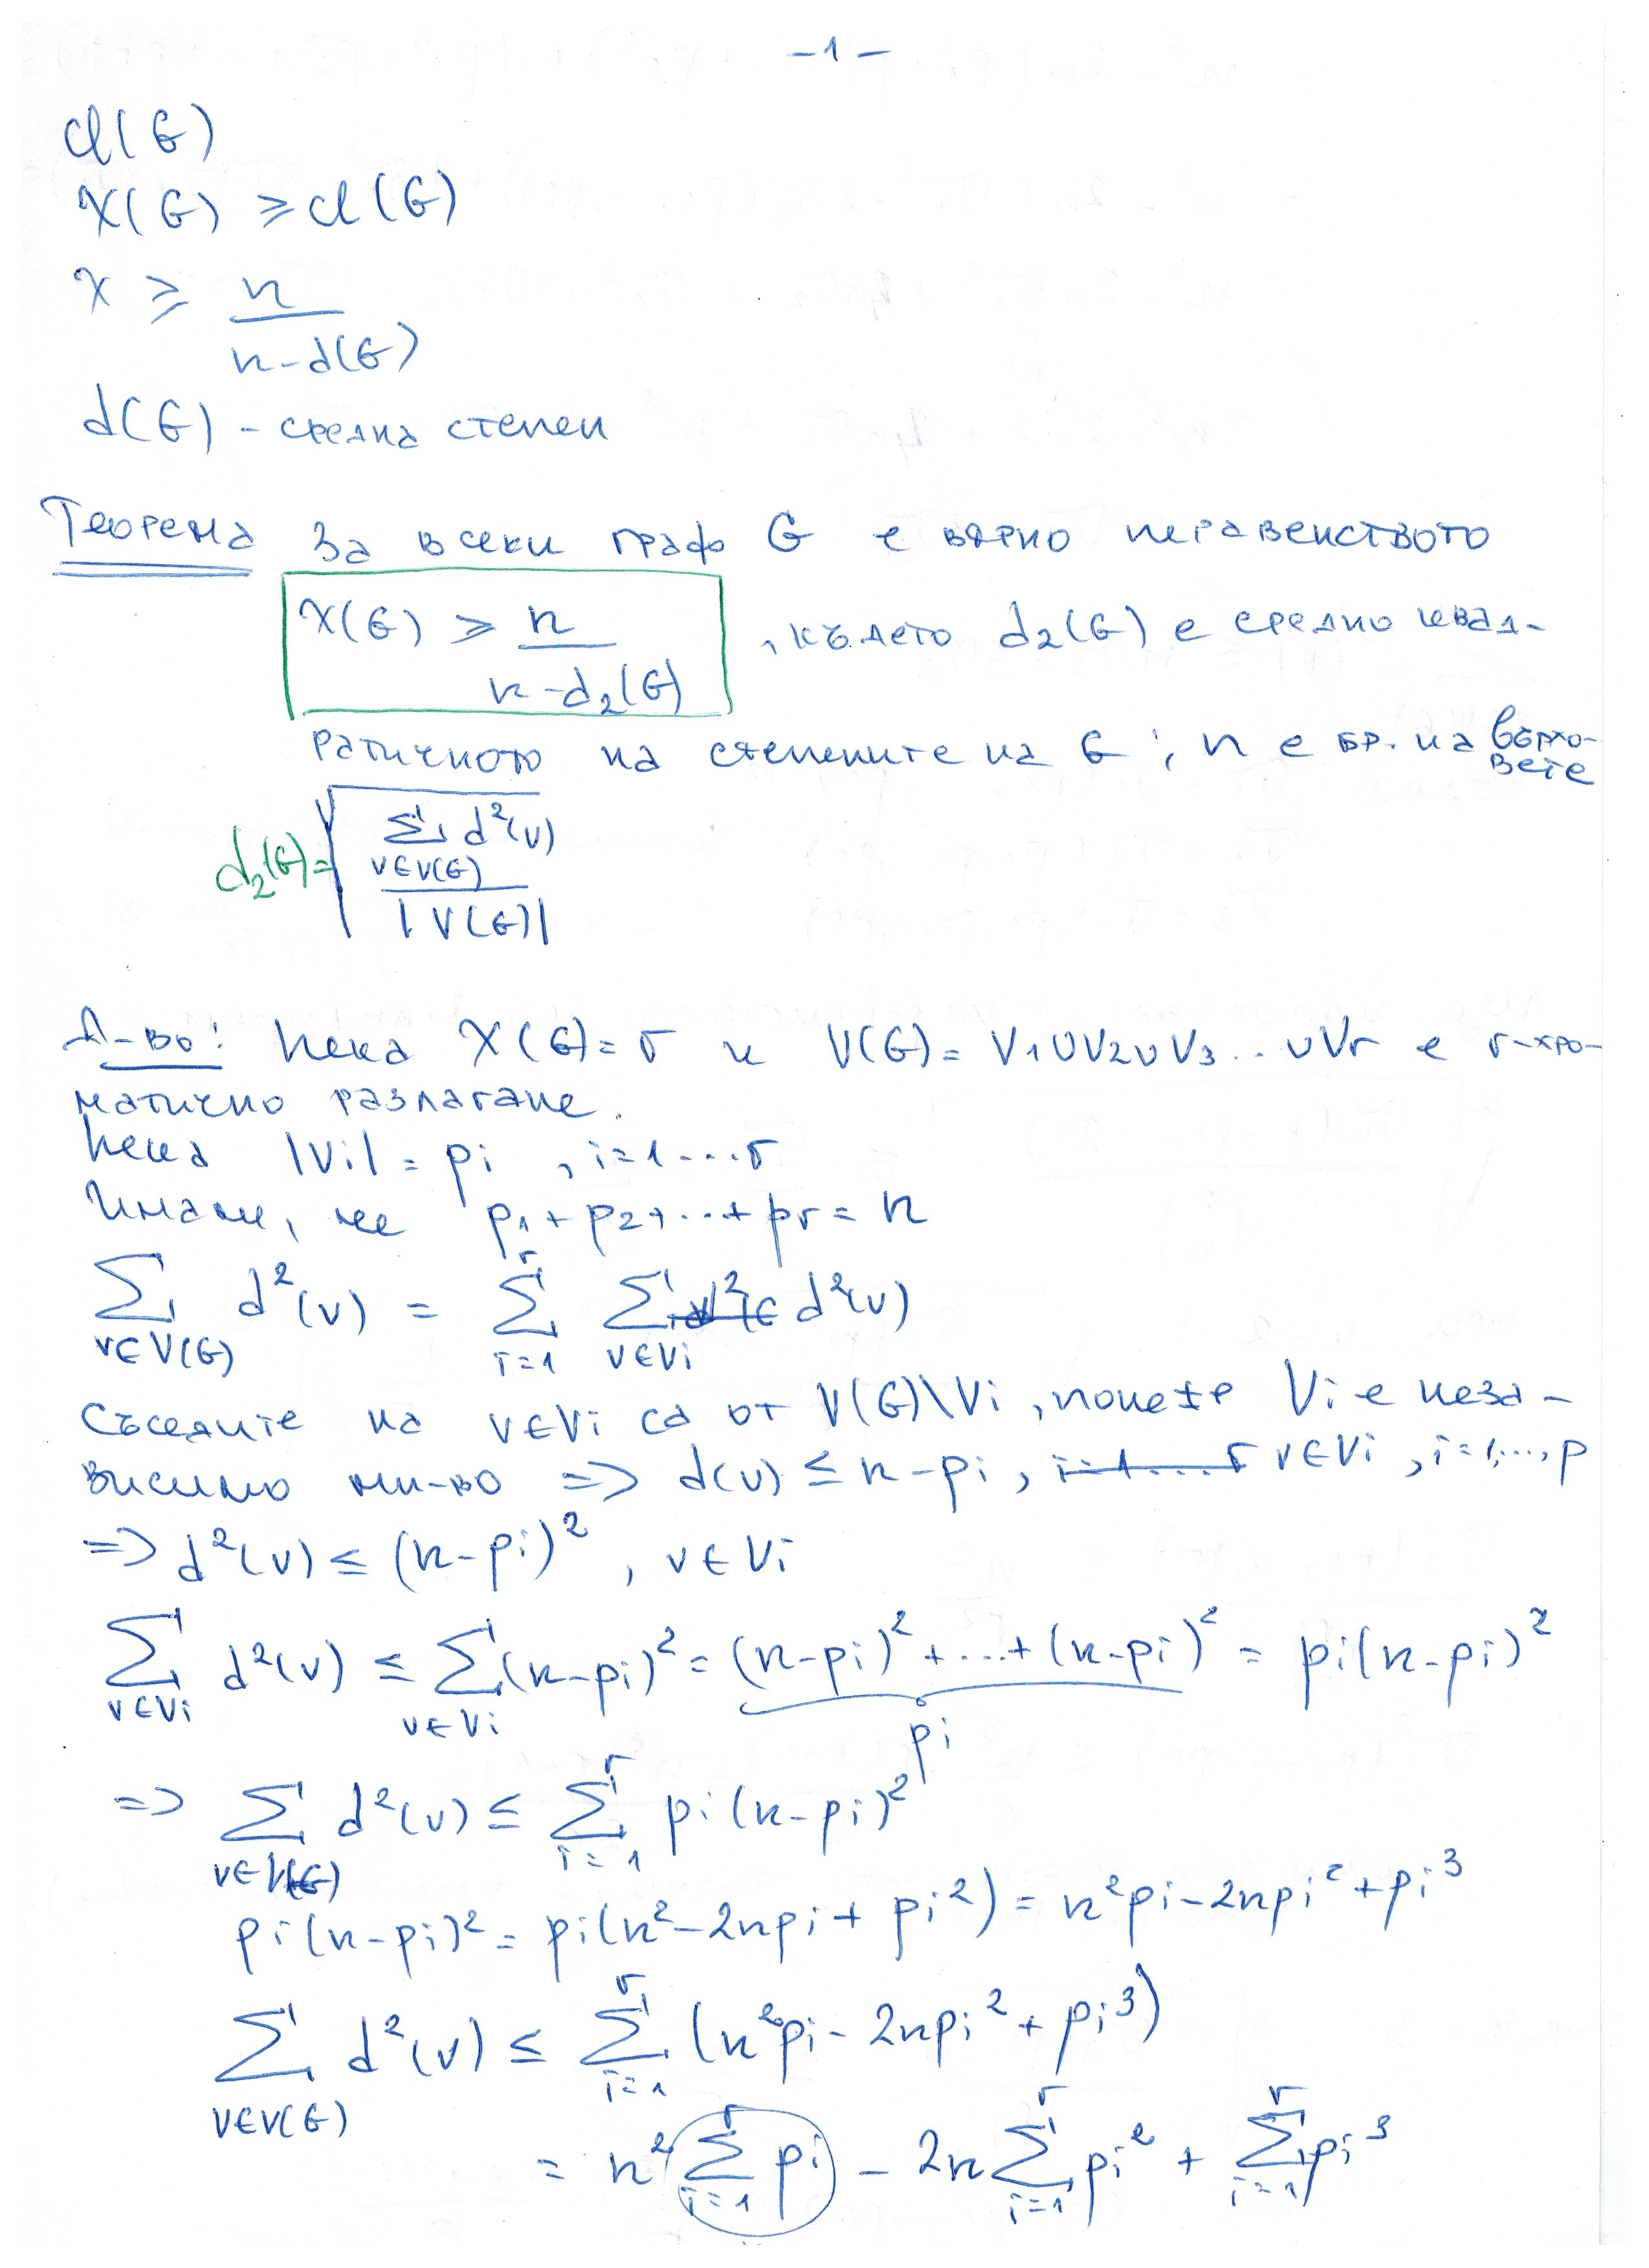 -1-
cl(G)
χ(G) ≥ cl(G)
χ ≥ n / (n-d(G))
d(G) - средна степен
Теорема За всеки граф G е вярно неравенството
χ(G) ≥ n / (n-d₂(G)) , където d₂(G) е средно квад-
ратичното на степените на G ; n е бр. на върхо-
вете
d₂(G) = √( ∑_{v∈V(G)} d²(v) / |V(G)| )
Д-во: Нека χ(G)=r и V(G)= V₁∪V₂∪V₃..∪Vr е r-хро-
матично разлагане.
Нека |Vi| = pi , i=1...r
Имаме, че p₁+p₂+...+pr = n
∑_{v∈V(G)} d²(v) = ∑_{i=1}^{r} ∑_{v∈Vi} d²(v)
Съседите на v∈Vi са от V(G)\Vi , понеже Vi е неза-
висимо мн-во => d(v) ≤ n-pi , v∈Vi , i=1,...,p
=> d²(v) ≤ (n-pi)² , v∈Vi
∑_{v∈Vi} d²(v) ≤ ∑_{v∈Vi} (n-pi)² = (n-pi)²+...+(n-pi)² = pi(n-pi)²
pi
=> ∑_{v∈V(G)} d²(v) ≤ ∑_{i=1}^{r} pi(n-pi)²
pi(n-pi)² = pi(n²-2npi+pi²) = n²pi-2npi²+pi³
∑_{v∈V(G)} d²(v) ≤ ∑_{i=1}^{r} (n²pi-2npi²+pi³)
= n² ∑_{i=1}^{r} pi - 2n ∑_{i=1}^{r} pi² + ∑_{i=1}^{r} pi³